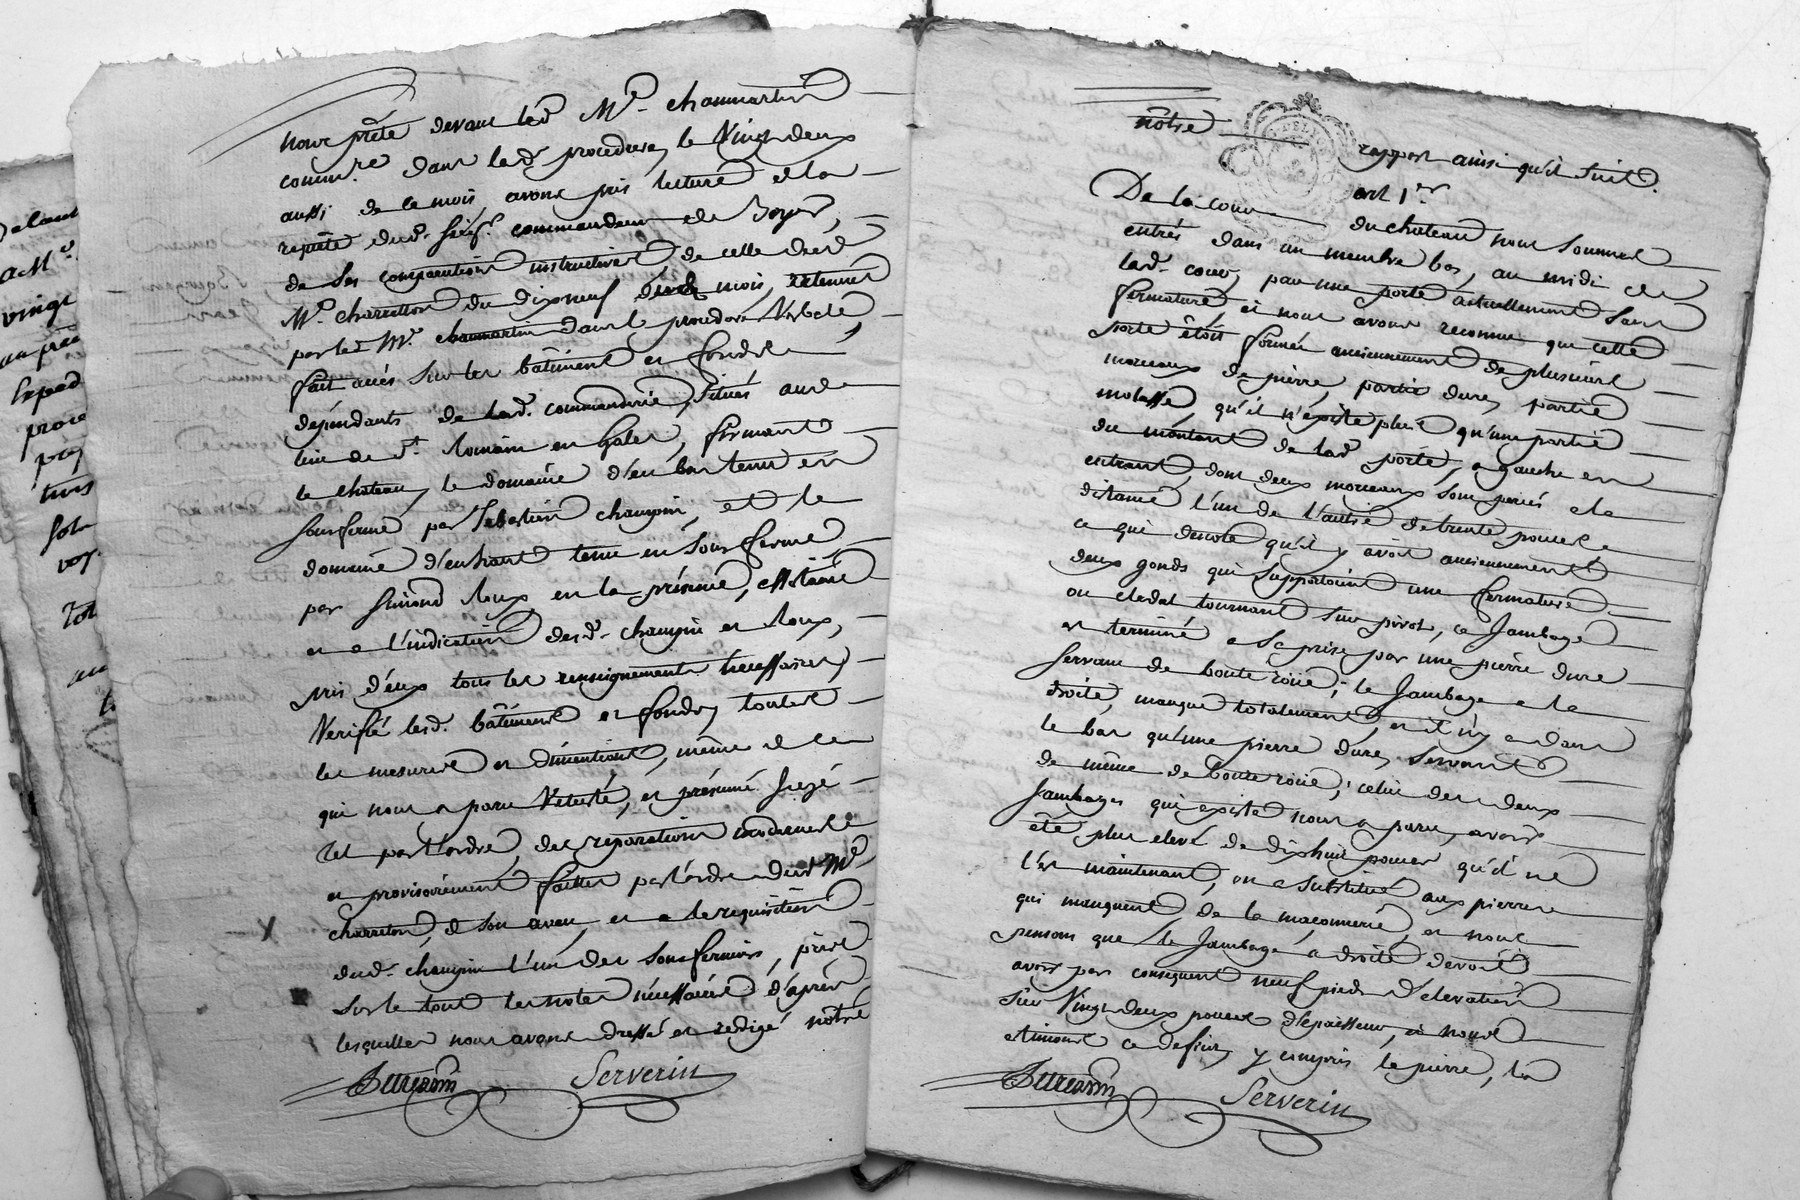 nous prété devant led. Me. chaumartin
commre. dans lad. procedure, le Vingt deux
aussi de ce mois, avons pris lecture et la
requête dud. sieur commandeur de
de ses conparutions instructives de celle dud.
Mr. charreton du dixneuf dud. mois, retenues
par led. Me. chaumartin dans le procédure Verbale,
fait accés sur les bâtiments et fonds
dépendants de lad. commanderie, situés au
lieu de St. Romain en gales, formant
le chateau, le domaine d'en bas tenu en
sousferme par Sebastien champin, et le
domaine d'enhaut tenu en sous ferme
par Simond Roux en la présence, assistance
et a l'indication desd. champin et Roux,
pris d'eux tous les renseignements necessaires,
Verifié lesd. bâtiments et fonds, toutes
les mesures et dimentions, même de ce
qui nous a paru Vetusté, et présumé jugé
tel par l'ordre, des reparations
et provisoirement faittes par l'ordre dud. Me
charreton, de son aveu, et a la requisition
dud. champin l'un des sousfermiers, pris
sur le tout les notes nécessaires d'après
lesquelles nous avons dressé et rédigé nôtre
Serverin
nôtre
rapport ainsi qu'il suit.
art 1er
De la cour du chateau nous sommes
entrés dans un membre bas, au midi de
lad. cour, par une porte actuellement sans
fermature, et nous avons reconnu que cette
porte étoit formée anciennement de plusieurs
morceaux de pierre, partie dure, partie
molasse, qu'il n'existe plus qu'une partie
du montant de lad. porte, a gauche en
entrant, dont deux morceaux sont percés a la
distance l'un de l'autre de trente pouces
ce qui denote qu'il y avoit anciennement
deux gonds qui supportoient une fermature
ou cledat tournant sur pivot, ce Jambage
est terminé a sa prise par une pierre dure
servant de bouteroüe; le Jambage a la
droite, manque totalement, et il n'y a dans
le bas qu'une pierre dure, servant
de même de bouteroüe; celui des deux
Jambages qui existe nous a paru, avoir
été plus elevé de dixhuit pouces qu'il ne
l'est maintenant, on a substitué aux pierres
qui manquent de la maçonnerie, et nous
pensons que le Jambage a droite devoit
avoir par consequent neuf pieds d'elevation
sur Vingt deux pouces d'épaisseur, et nous
estimons ce deficit, y compris la pierre, la
Serverin